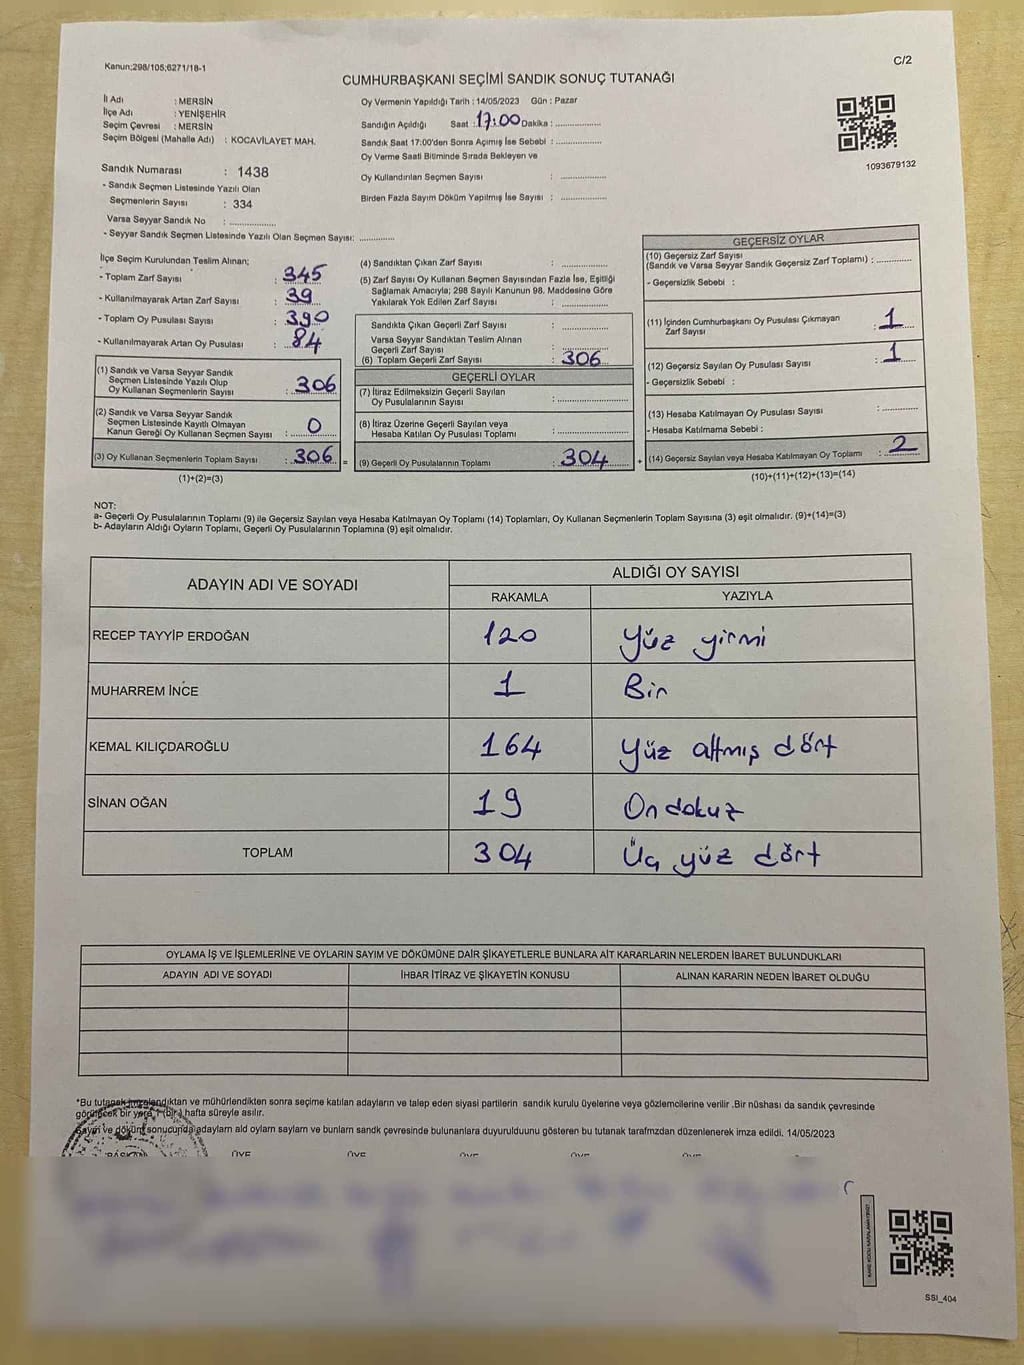 Kanun;298/105;6271/18-1
C/2
CUMHURBAŞKANI SEÇİMİ SANDIK SONUÇ TUTANAĞI
İl Adı : MERSİN
İlçe Adı : YENİŞEHİR
Seçim Çevresi : MERSİN
Seçim Bölgesi (Mahalle Adı) : KOCAVİLAYET MAH.
Oy Vermenin Yapıldığı Tarih : 14/05/2023 Gün : Pazar
Sandığın Açıldığı Saat : 17:00 Dakika : ..................
Sandık Saat 17:00'den Sonra Açımış İse Sebebi : ..................
Oy Verme Saati Bitiminde Sırada Bekleyen ve
Oy Kullandırılan Seçmen Sayısı : ..................
Birden Fazla Sayım Döküm Yapılmış İse Sayısı : ..................
1093679132
Sandık Numarası : 1438
- Sandık Seçmen Listesinde Yazılı Olan
Seçmenlerin Sayısı : 334
Varsa Seyyar Sandık No : ..................
- Seyyar Sandık Seçmen Listesinde Yazılı Olan Seçmen Sayısı: .............
İlçe Seçim Kurulundan Teslim Alınan;
- Toplam Zarf Sayısı : 345
- Kullanılmayarak Artan Zarf Sayısı : 39
- Toplam Oy Pusulası Sayısı : 390
- Kullanılmayarak Artan Oy Pusulası : 84
(1) Sandık ve Varsa Seyyar Sandık
Seçmen Listesinde Yazılı Olup
Oy Kullanan Seçmenlerin Sayısı : 306
(2) Sandık ve Varsa Seyyar Sandık
Seçmen Listesinde Kayıtlı Olmayan
Kanun Gereği Oy Kullanan Seçmen Sayısı : 0
(3) Oy Kullanan Seçmenlerin Toplam Sayısı : 306 =
(1)+(2)=(3)
(4) Sandıktan Çıkan Zarf Sayısı : ..................
(5) Zarf Sayısı Oy Kullanan Seçmen Sayısından Fazla İse, Eşitliği
Sağlamak Amacıyla; 298 Sayılı Kanunun 98. Maddesine Göre
Yakılarak Yok Edilen Zarf Sayısı : ..................
Sandıkta Çıkan Geçerli Zarf Sayısı : ..................
Varsa Seyyar Sandıktan Teslim Alınan
Geçerli Zarf Sayısı : ..................
(6) Toplam Geçerli Zarf Sayısı : 306
GEÇERLİ OYLAR
(7) İtiraz Edilmeksizin Geçerli Sayılan
Oy Pusulalarının Sayısı : ..................
(8) İtiraz Üzerine Geçerli Sayılan veya
Hesaba Katılan Oy Pusulası Toplamı : ..................
(9) Geçerli Oy Pusulalarının Toplamı : 304 +
GEÇERSİZ OYLAR
(10) Geçersiz Zarf Sayısı
(Sandık ve Varsa Seyyar Sandık Geçersiz Zarf Toplamı) : .............
- Geçersizlik Sebebi :
(11) İçinden Cumhurbaşkanı Oy Pusulası Çıkmayan
Zarf Sayısı : 1
(12) Geçersiz Sayılan Oy Pusulası Sayısı : 1
- Geçersizlik Sebebi :
(13) Hesaba Katılmayan Oy Pusulası Sayısı : .............
- Hesaba Katılmama Sebebi :
(14) Geçersiz Sayılan veya Hesaba Katılmayan Oy Toplamı : 2
(10)+(11)+(12)+(13)=(14)
NOT:
a- Geçerli Oy Pusulalarının Toplamı (9) ile Geçersiz Sayılan veya Hesaba Katılmayan Oy Toplamı (14) Toplamları, Oy Kullanan Seçmenlerin Toplam Sayısına (3) eşit olmalıdır. (9)+(14)=(3)
b- Adayların Aldığı Oyların Toplamı, Geçerli Oy Pusulalarının Toplamına (9) eşit olmalıdır.
ADAYIN ADI VE SOYADI ALDIĞI OY SAYISI
RAKAMLA YAZIYLA
RECEP TAYYİP ERDOĞAN 120 Yüz yirmi
MUHARREM İNCE 1 Bir
KEMAL KILIÇDAROĞLU 164 Yüz altmış dört
SİNAN OĞAN 19 On dokuz
TOPLAM 304 Üç yüz dört
OYLAMA İŞ VE İŞLEMLERİNE VE OYLARIN SAYIM VE DÖKÜMÜNE DAİR ŞİKAYETLERLE BUNLARA AİT KARARLARIN NELERDEN İBARET BULUNDUKLARI
ADAYIN ADI VE SOYADI İHBAR İTİRAZ VE ŞİKAYETİN KONUSU ALINAN KARARIN NEDEN İBARET OLDUĞU
*Bu tutanak imzalandıktan ve mühürlendikten sonra seçime katılan adayların ve talep eden siyasi partilerin sandık kurulu üyelerine veya gözlemcilerine verilir .Bir nüshası da sandık çevresinde
görülecek bir yere 1 (bir) hafta süreyle asılır.
Sayın ve döküm sonucunda adayların ald oyların sayların ve bunların sandk çevresinde bulunanlara duyurulduunu gösteren bu tutanak tarafmzdan düzenlenerek imza edildi. 14/05/2023
BAŞKAN ÜYE ÜYE ÜYE ÜYE ÜYE
SSI_404